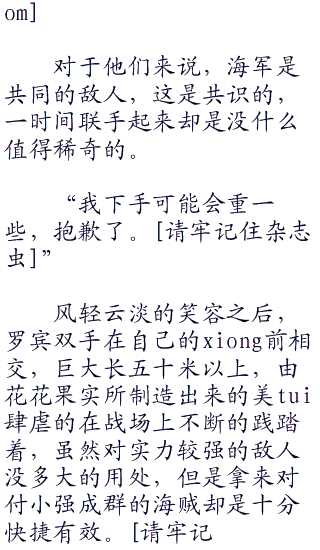 om]
对于他们来说，海军是
共同的敌人，这是共识的，
一时间联手起来却是没什么
值得稀奇的。
“我下手可能会重一
些，抱歉了。[请牢记住杂志
虫]”
风轻云淡的笑容之后，
罗宾双手在自己的xiong前相
交，巨大长五十米以上，由
花花果实所制造出来的美tui
肆虐的在战场上不断的践踏
着，虽然对实力较强的敌人
没多大的用处，但是拿来对
付小强成群的海贼却是十分
快捷有效。[请牢记